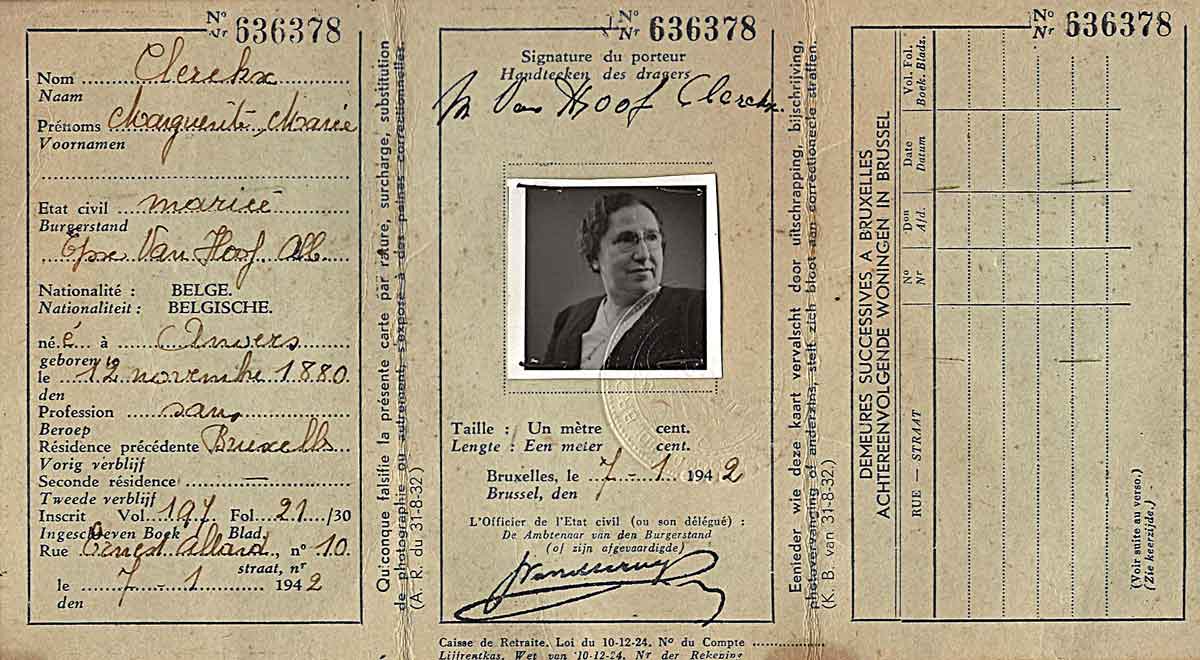 Nº
Nr 636378
Nom Clerckx
Naam
Prénoms Marguerite, Marie
Voornamen
Etat civil mariée
Burgerstand
Epse Van Hoof Alb
Nationalité : BELGE.
Nationaliteit : BELGISCHE.
né e à Anvers
geboren te
le 12 novembre 1880.
den
Profession sans
Beroep
Résidence précédente Bruxelles
Vorig verblijf
Seconde résidence —
Tweede verblijf
Inscrit Vol. 197 Fol. 21 /30
Ingeschreven Boek Blad.
Rue Ernest Allard, nº 10.
straat, nr
le 7 - 1 1942
den
Quiconque falsifie la présente carte par rature, surcharge, substitution
de photographie ou autrement, s'expose à des peines correctionnelles.
(A. R. du 31-8-32.)
Nº
Nr 636378
Signature du porteur
Handteeken des dragers
M Van Hoof Clerckx
Taille : Un mètre cent.
Lengte : Een meter cent.
Bruxelles, le 7 - 1 1942
Brussel, den
L'Officier de l'Etat civil (ou son délégué) :
De Ambtenaar van den Burgerstand
(of zijn afgevaardigde)
Caisse de Retraite. Loi du 10-12-24. Nº du Compte
Lijfrentkas. Wet van 10-12-24. Nr der Rekening
Eenieder wie deze kaart vervalscht door uitschrapping, bijschrijving,
photovervanging of anderszins, stelt zich bloot aan correctioneele straffen.
(K. B. van 31-8-32.)
Nº
Nr 636378
DEMEURES SUCCESSIVES A BRUXELLES
ACHTEREENVOLGENDE WONINGEN IN BRUSSEL
RUE — STRAAT
Nº
Nr
Don
Afd.
Date
Datum
Vol. Fol.
Boek. Blads.
(Voir suite au verso.)
(Zie keerzijde.)